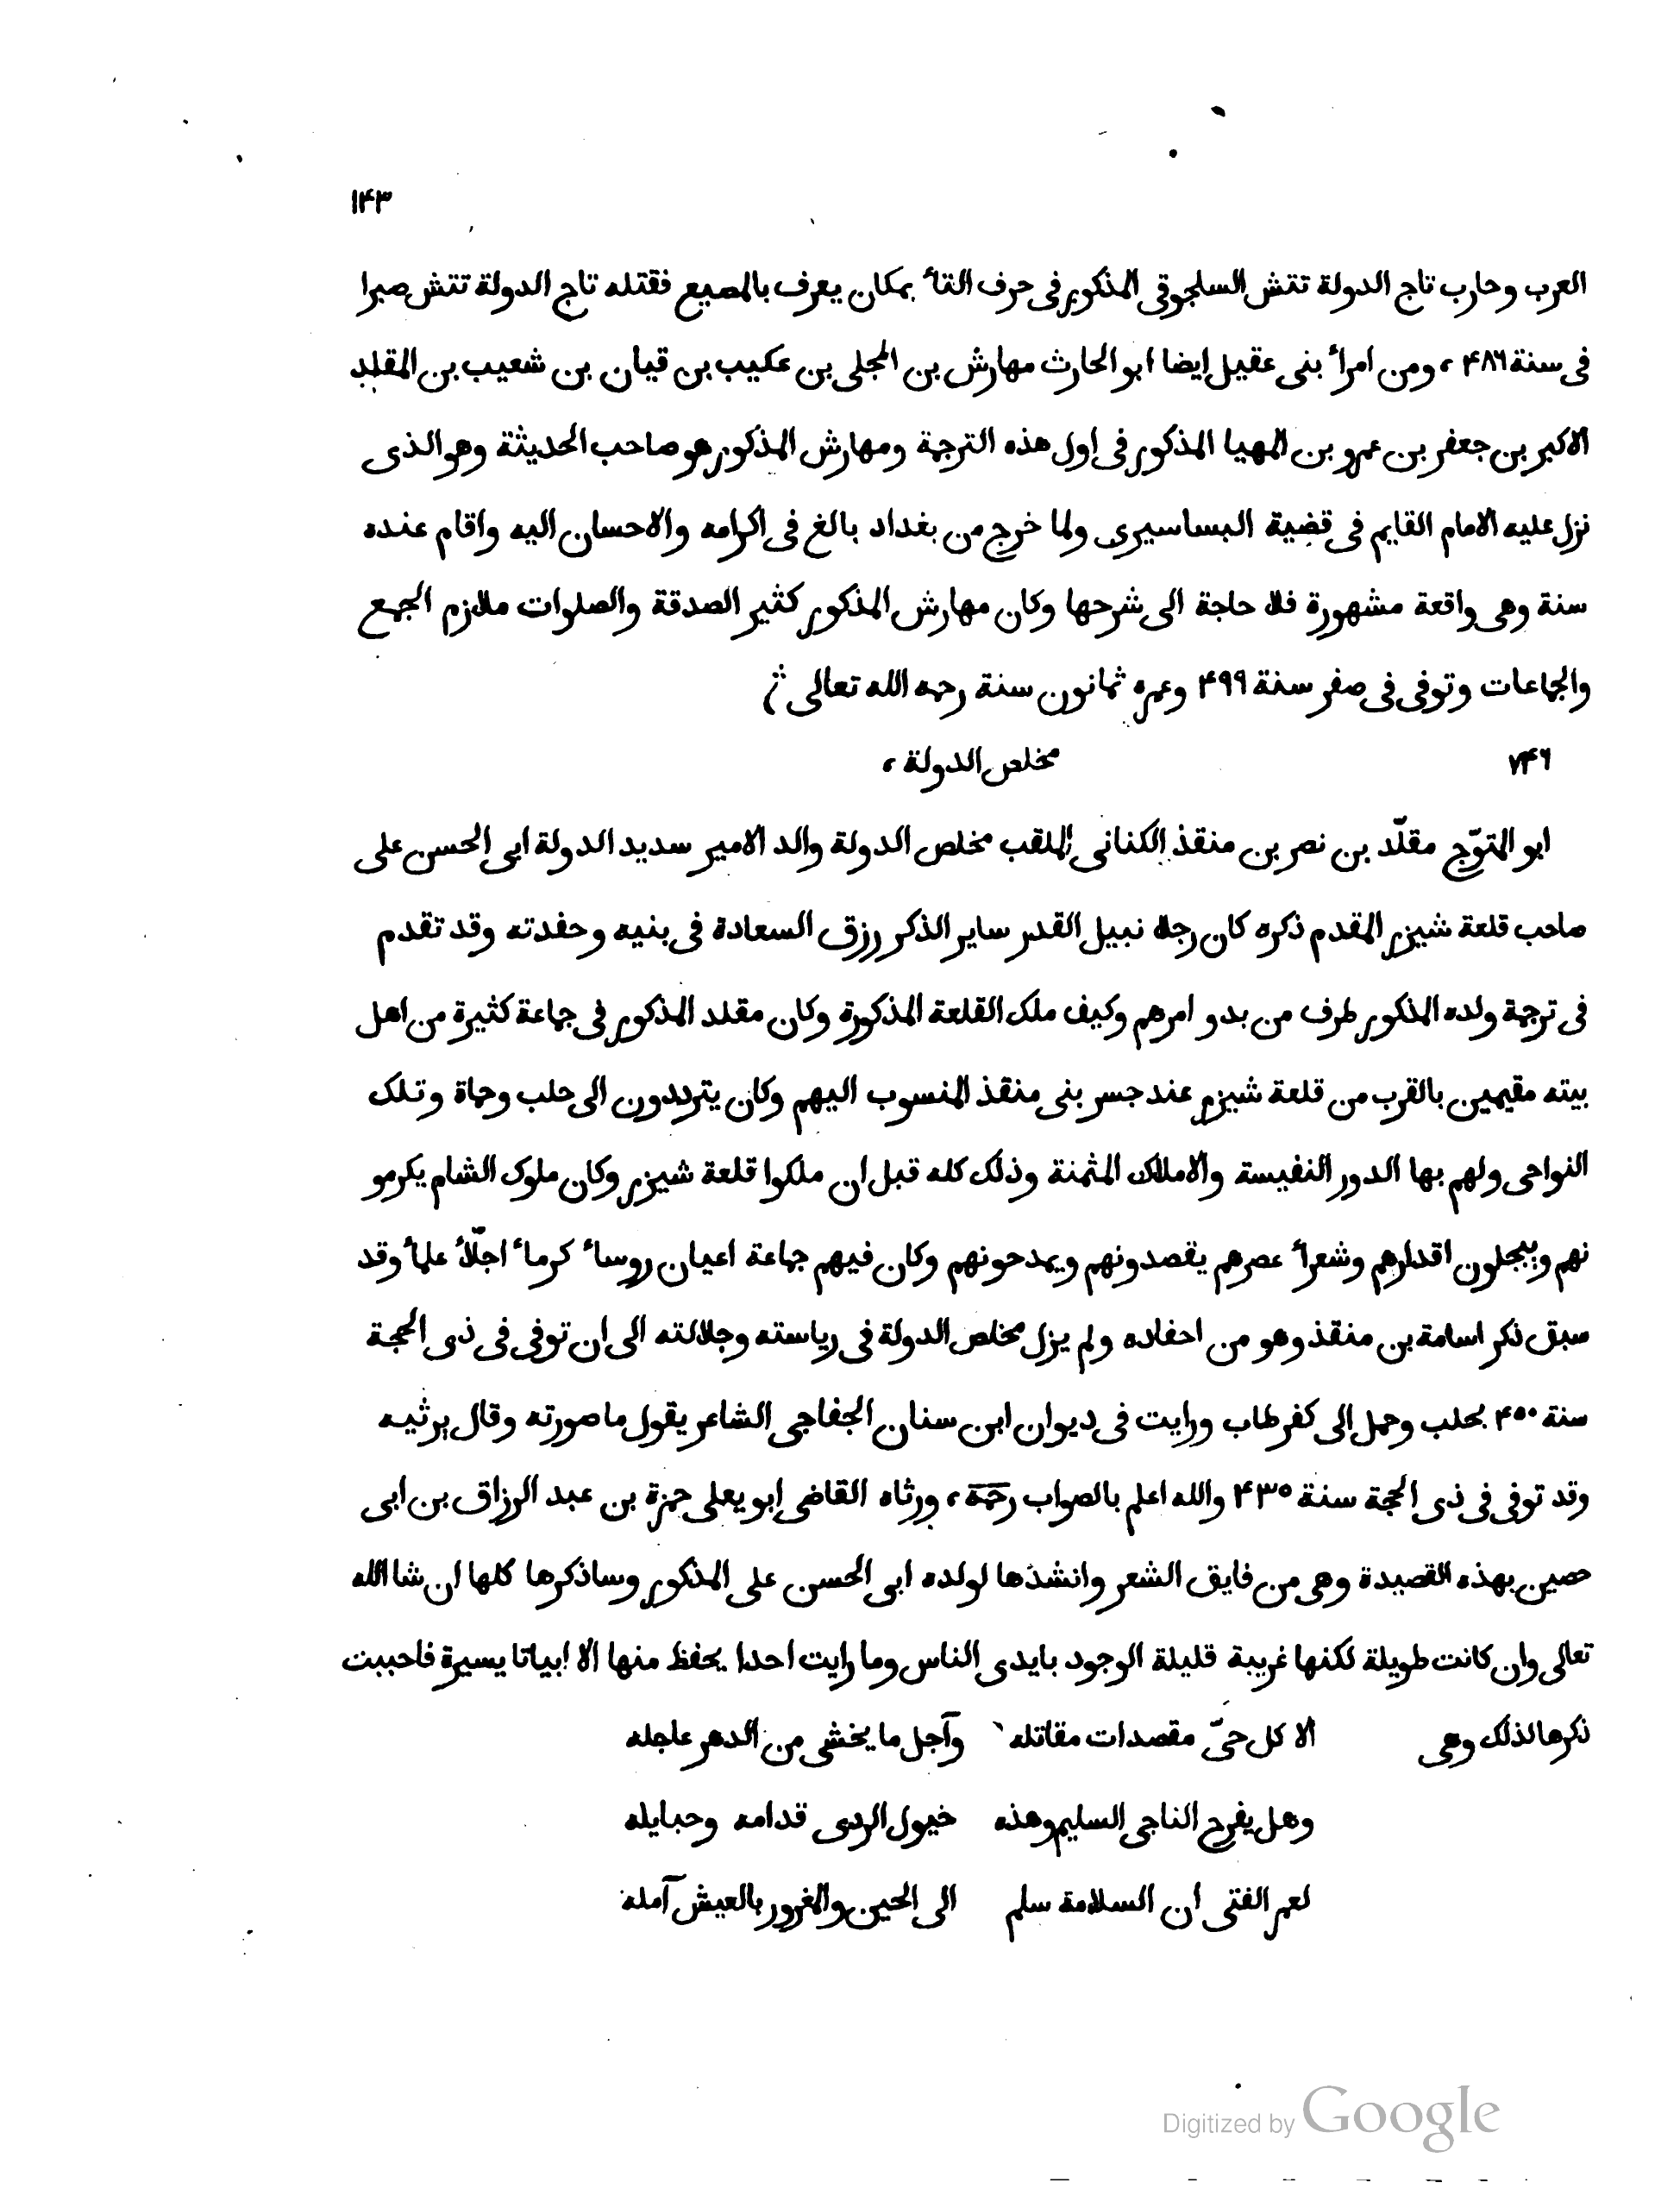 ١۴٣
العرب وحارب تاج الدولة تتش السلجوقى المذكور فى حرف التأ بمكان يعرف بالمصيع فقتله تاج الدولة تتش صبرا
فى سنة ۴٨٦ ، ومن امرأ بنى عقيل ايضا ابو الحارث مهارش بن المجلى بن عكيب بن قيان بن شعيب بن المقلد
الاكبر بن جعفر بن عمرو بن المهيا المذكور فى اول هذه الترجمة ومهارش المذكور هو صاحب الحديثة وهو الذى
نزل عليه الامام القايم فى قضية البساسيرى ولما خرج من بغداد بالغ فى اكرامه والاحسان اليه واقام عنده
سنة وهى واقعة مشهورة فلا حاجة الى شرحها وكان مهارش المذكور كثير الصدقة والصلوات ملازم الجمع
والجماعات وتوفى فى صفر سنة ۴٩٩ وعمره ثمانون سنة رحمه الله تعالى
٧۴٦ مخلص الدولة ،
ابو المتوّج مقلّد بن نصر بن منقذ الكنانى الملقب مخلص الدولة والد الامير سديد الدولة ابى الحسن على
صاحب قلعة شيزر المقدم ذكره كان رجلا نبيل القدر ساير الذكر رزق السعادة فى بنيه وحفدته وقد تقدم
فى ترجمة ولده المذكور طرف من بدو امرهم وكيف ملك القلعة المذكورة وكان مقلد المذكور فى جماعة كثيرة من اهل
بيته مقيمين بالقرب من قلعة شيزر عند جسر بنى منقذ المنسوب اليهم وكان يترددون الى حلب وحماة وتلك
النواحى ولهم بها الدور النفيسة والاملاك المثمنة وذلك كله قبل ان ملكوا قلعة شيزر وكان ملوك الشام يكرمو
نهم ويبجلون اقدارهم وشعرأ عصرهم يقصدونهم ويمدحونهم وكان فيهم جماعة اعيان روسأ كرمأ اجلّأ علمأ وقد
سبق ذكر اسامة بن منقذ وهو من احفاده ولم يزل مخلص الدولة فى رياسته وجلالته الى ان توفى فى ذى الحجة
سنة ۴٥٠ بحلب وحمل الى كفر طاب ورايت فى ديوان ابن سنان الجفاجى الشاعر يقول ما صورته وقال يرثيه
وقد توفى فى ذى الحجة سنة ۴٣٥ والله اعلم بالصواب رحمة ، ورثاه القاضى ابو يعلى حمزة بن عبد الرزاق بن ابى
حصين بهذه القصيدة وهى من فايق الشعر وانشذها لولده ابى الحسن على المذكور وساذكرها كلها ان شا الله
تعالى وان كانت طويلة لكنها غريبة قليلة الوجود بايدى الناس وما رايت احدا يحفظ منها الا ابياتا يسيرة فاحببت
ذكرها لذلك وهى الا كل حىّ مقصدات مقاتله وآجل ما يخشى من الدهر عاجله
وهل يفرح الناجى السليم وهذه خيول الردى قدامه وحبايله
لعمر الفتى ان السلامة سلم الى الحين والمغرور بالعيش آمله
Digitized by Google